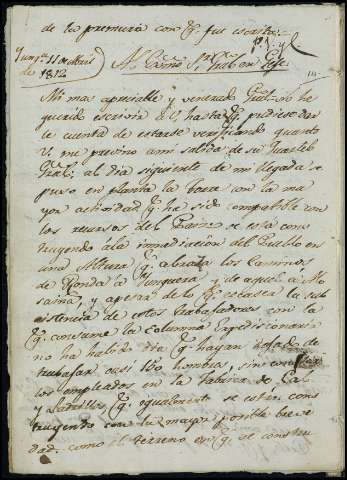 de la premura con q.e fue escrita.
Yunq.ra 11 de Abril
de 1812
Al Exmo S.r
Mi mas apreciable y venerado Gral. no he
querido escrivir a V. hasta q.e pudiese dar
le cuenta de estarse verificando quanto
V. me previno a mi salida de su Quartel
Gral; al dia siguiente de mi llegada se
puso en planta la con la ma
yor actividad q.e ha sido compatible con
los recursos del Pais: se está cons
truyendo á la inmediacion del Pueblo en
una Altura q.e abraza los caminos
de Ronda á Yunquera, y de aquel á Mo
, y apesar de lo q.e escasea la sub
sistencia de estos trabajadores con la
q.e consume la columna Expedicionaria
no ha habido dia q.e hayan dejado de
trabajar casi 150 hombres, sin contar
los empleados en la fabrica de Cal
y Ladrillo, q.e igualmente se están cons
truyendo con la mayor posible breve
dad. como el terreno en q.e se constru